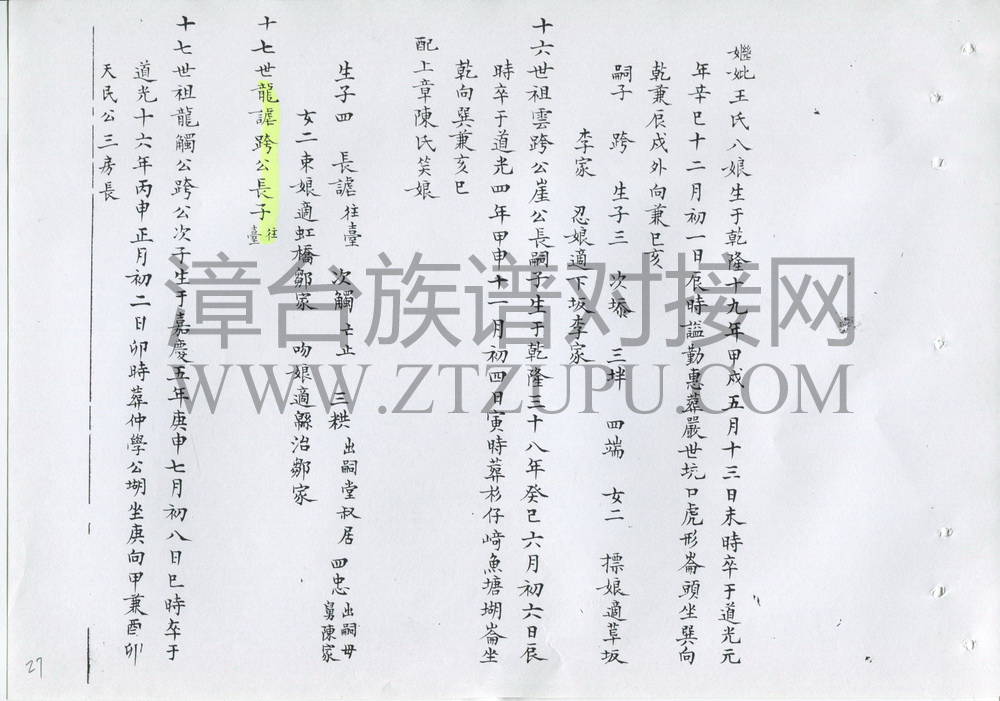 繼妣王氏八娘生于乾隆十九年甲戌五月十三日未時卒于道光元
年辛巳十二月初一日辰時謚勤惠葬嚴世坑口虎形崙頭坐巽向
乾兼辰戌外向兼巳亥
嗣子 跨 生子三 次 三 四端 女二 標娘適草坂
李家 忍娘適下坂李家
十六世祖雲跨公崖公長嗣子生于乾隆三十八年癸巳六月初六日辰
時卒于道光四年甲申十一月初四日寅時葬杉仔崎魚塘堋崙坐
乾向巽兼亥巳
配上章陳氏笑娘
生子四 長謔往臺 次觸亡止 三粠出嗣堂叔居 四忠出嗣母舅陳家
女二東娘適虹橋鄒家 吻娘適縣治鄒家
十七世龍謔跨公長子往臺
十七世祖龍觸公跨公次子生于嘉慶五年庚申七月初八日巳時卒于
道光十六年丙申正月初二日卯時葬仲學公堋坐庚向甲兼酉卯
天民公三房長
27
漳台族谱对接网
WWW.ZTZUPU.COM